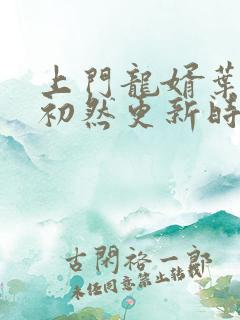 上門龍婿葉
初然更新時
古閑裕一郎
未经同意禁止转载